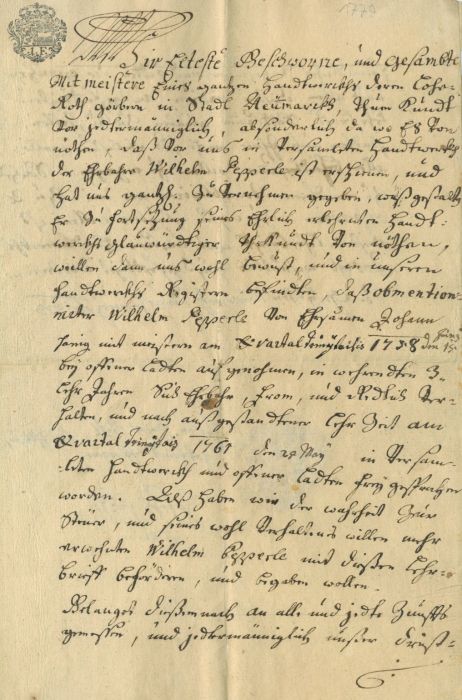 1770
Wir Elteste Beschworne, und gesambte
Mit meistere Eines gantzen Handtwerckhs deren Loho-
Roth görbern in Stadl Neumarckh, Thuen Kundt
Vor jedermänniglich, absonderlich da wo Es von
nöthen, daß vor uns in versambten Handtwerckh
der Ehrbahre Wilhelm Pepperle ist erschienen, und
hat uns gantz Zu vernehmen gegeben, waß gestalten
Er Zu fortsetzung seines Ehrlich erlehrnten Handt-
werckhs glaubwürdiger Uhrkundt von nöthen,
weillen dann uns wohl bewust, und in unseren
Handtwerckhs Registern befindten, daß obmention-
irter Wilhelm Pepperle von Ehrsamen Johann
mit meistern am Quartal Trinitatis 1758 den
bey offener ladten auf genohmen, in wehrendten 3
Lehr Jahren sich Ehrbahr, from, und Redlich ver-
halten, und nach auß gestandtener Lehr Zeit am
Quartal Trinitatis 1761 den 24 May in versam-
leten Handtwerckh und offener ladten frey gesprochen
worden. Alß haben wir der wahrheit Zur
Steüer, und seines wohl verhaltens willen mehr
erwehnten Wilhelm Pepperle mit diesen Lehr-
brieff beförderen, und begaben wollen.
Belanget diesemnach an alle und jedte Zunfft
genossen, und jedermänniglich unser dienst-